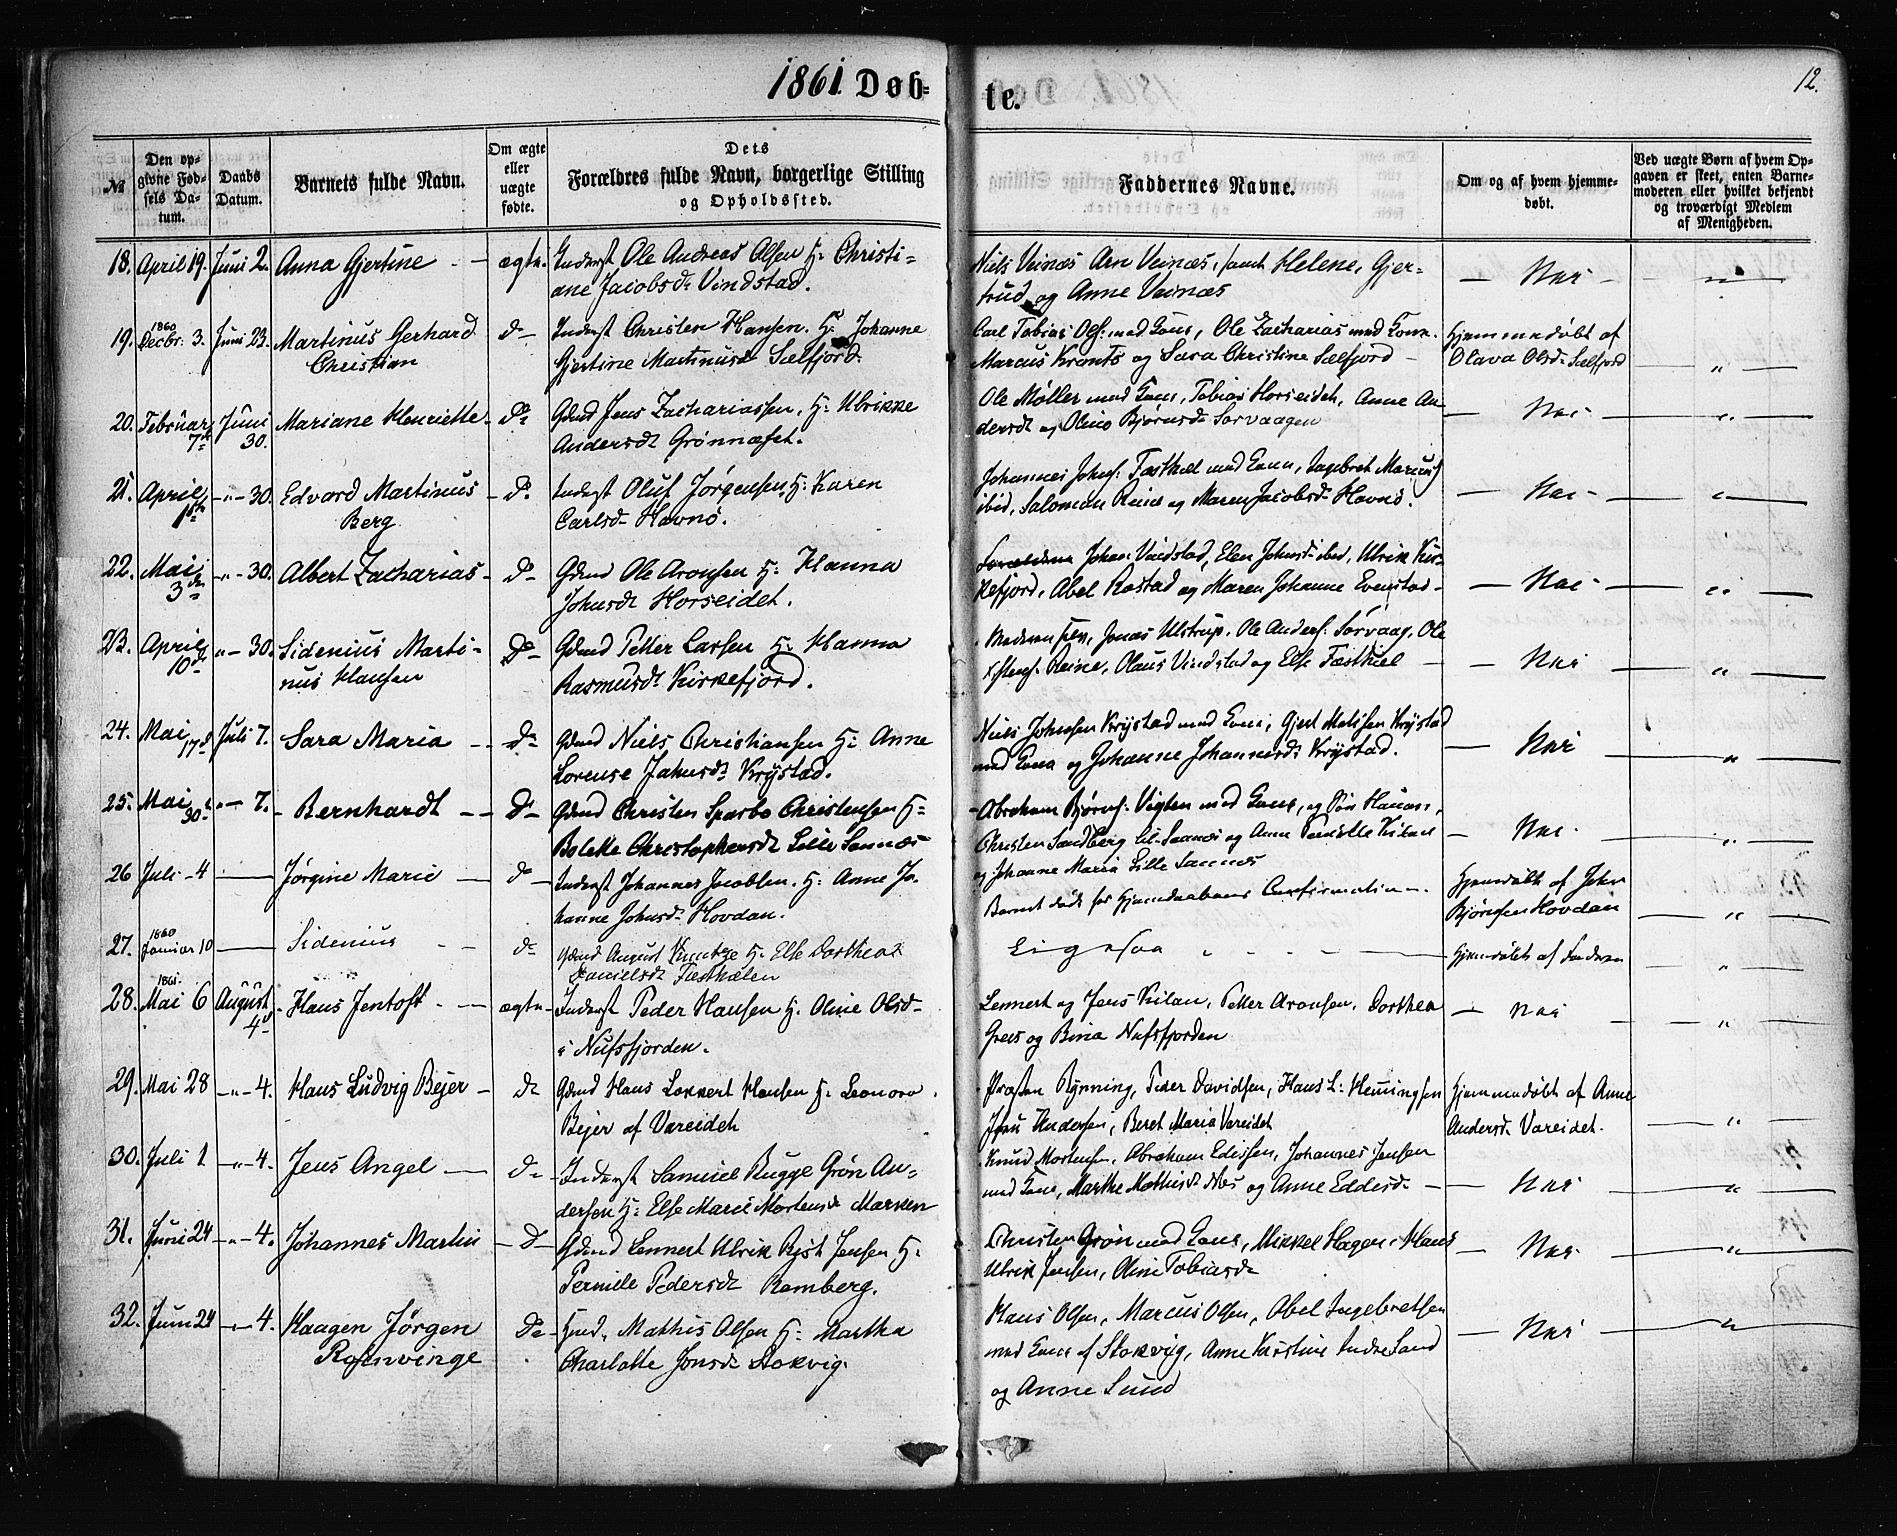 1861. Døb=
te.
12.
№
Den op-
givne Fød-
sels Da-
tum.
Daabs
Datum.
Barnets fulde Navn.
Om ægte
eller
uægte
fødte.
Dets
Forældres fulde Navn, borgerlige Stilling
og Opholdssted.
Faddernes Navne.
Om og af hvem hjemme-
døbt.
Ved uægte Børn af hvem Op-
gaven er skeet, enten Barne-
moderen eller hvilket bekjendt
og troværdigt Medlem
af Menigheden.
18. April 19. Juni 2. Anna Gjertine — ægte. Inderst Ole Andreas Olsen H: Christi=
ane Jacobsdr Vindstad.
Niels Veinæs Arn Veinæs, samt Helene, Gjer=
trud og Anne Veinæs
— Nei —
1860
19. Decbr. 3. Juni 23. Martinus Gerhard
Christian
do — Inderst Christen Hansen. H: Johanne
Gjertine Martinusdr Selfjord.
Carl Tobias Ols: med Kone, Ole Zacharias med Kone.
Marcus Krantz og Sara Christine Selfjord —
Hjemmedøbt af
Olava Olsdr Selfjord
— " —
20. Februar
7de
Juni
30.
Mariane Henriette — Do Gdmd Jens Zachariassen, H: Ulrikke
Andersdr Grønnæset.
Ole Møller med Kone, Tobias Horseidet, Anne An
dersdr og Oline Bjørnsdr Sørvaagen
— Nei — "
21. April
—"— 30. Edvard Martinus
Berg
— do. Inderst Oluf Jørgensen, H: Karen
Carlsdr Havnø.
Johannes Johns: Fæsthæl med Kone, Ingebret Marcus
ibid, Salomon Reine og Maren Jacobsdr Havnø.
— Nei — "
22. Mai
3die
—"— 30. Albert Zacharias — do — Gdmd Ole Aronsen H: Hanna
Johnsdr Horseidet.
Johan Vindstad, Elen Johnsdr ibid, Ulrik Kir=
kefjord, Abel Rostad og Maren Johanne Evenstad —
— Nei — "
23. April
10de
"— 30. Sidenius Marti=
nus Hansen
Do — Gdmd Petter Larsen H: Hanna
Rasmusdr Kirkefjord.
Jonas Ulstrup. Ole Anders: Sørvaag. Ole
Reine, Olaus Vindstad og Else Fæsthæl —
— Nei — "
24. Mai
17de
Juli 7. Sara Maria — do Gdmd Niels Christiansen H: Anne
Lorense Johnsdr Krystad.
Niels Johnsen Krystad med Kone, Gjert Matssen Krystad
med Kone og Johanne Johannesdr Krystad.
— Nei — "
25. Mai
30de
"— 7. Bernhardt — Do Gdmd Christen Sparbo Christensen H:
Bolette Christophersdr Lille Sannæs
Abraham Bjørns: Vigten med Kone, og
Christen Sandberg Lil-Sannæs og Anne Pernille Kilan
og Johanne Maria Lille Sannæs
— Nei. "
26 Juli — 4 — Jørgine Marie — do — Inderst Johannes Jacobsen. H: Anne Jo.
hanne Johnsdr Hovdan.
Barnet døde før Hjemmedaabens Confirmation —.
Hjemmedøbt af John
Bjørnsen Hovdan
— " —
1860
27. Januar 10 — Sidenius — do Gdmd August H: Else Dorthea
Danielsdr Fæsthælen
Ligesaa " —
Hjemmedøbt af
"
1861.
28. Mai 6 August
4de
Hans Jentoft — ægte. Inderst Peder Hansen H. Oline Olsdr
i Nufsfjorden.
Lennert og Jens Kilan, Petter Aronsen. Dorthea
Grees og Bina Nufsfjorden
— nei — "
29. Mai 28 —"— 4. Hans Ludvig Bejer — do Gdmd Hans Lokkert Hansen H. Leonora
Bejer af Vareidet
Præsten Rynning, Peder Davidsen, Hans L: Hemingsen
Andersen, Beret Maria Vareidet
Hjemmedøbt af Anne
Andersdr Vareidet.
— " —
30. Juli 1 —"— 4. Jens Angel — do — Inderst Samuel Bugge Grøn An=
dersen H: Else Marie Mortensdr Marken
Knud Mortensen. Abraham Edissen, Johannes Jensen
med Kone, Marthe Mathisdr Næs og Anne Eddesdr —
— Nei — "
31. Juni 24 —"— 4. Johannes Martin — do — Gdmd Lennert Ulrik Rist Jensen H:
Pernille Pedersdr Ramberg.
Christen Grøn med Kone, Mikkel Hagen, Hans
Ulrik Jensen, Oline Tobiasdr
— Nei — "
32. Juni 24 —"— 4. Haagen Jørgen
Rosenvinge
do — Gmd. Mathis Olsen H: Martha
Charlotte Jonsdr Stokvig.
Hans Olsen, Marcus Olsen, Abel Ingebretsen
med Kone af Stokvig, Anne Kirstine Indre Sand
og Anne Sund
— Nei — "